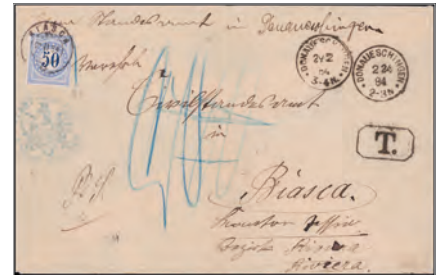 Vom Standesamt in Donaueschingen
BIASCA
50
DONAUESCHINGEN
2 2
84
DONAUESCHINGEN
2 2 84
2-3N
Civilstandesamt
in
T.
Biasca.
Kanton Tessin
Bezirk Riviera
Riviera.